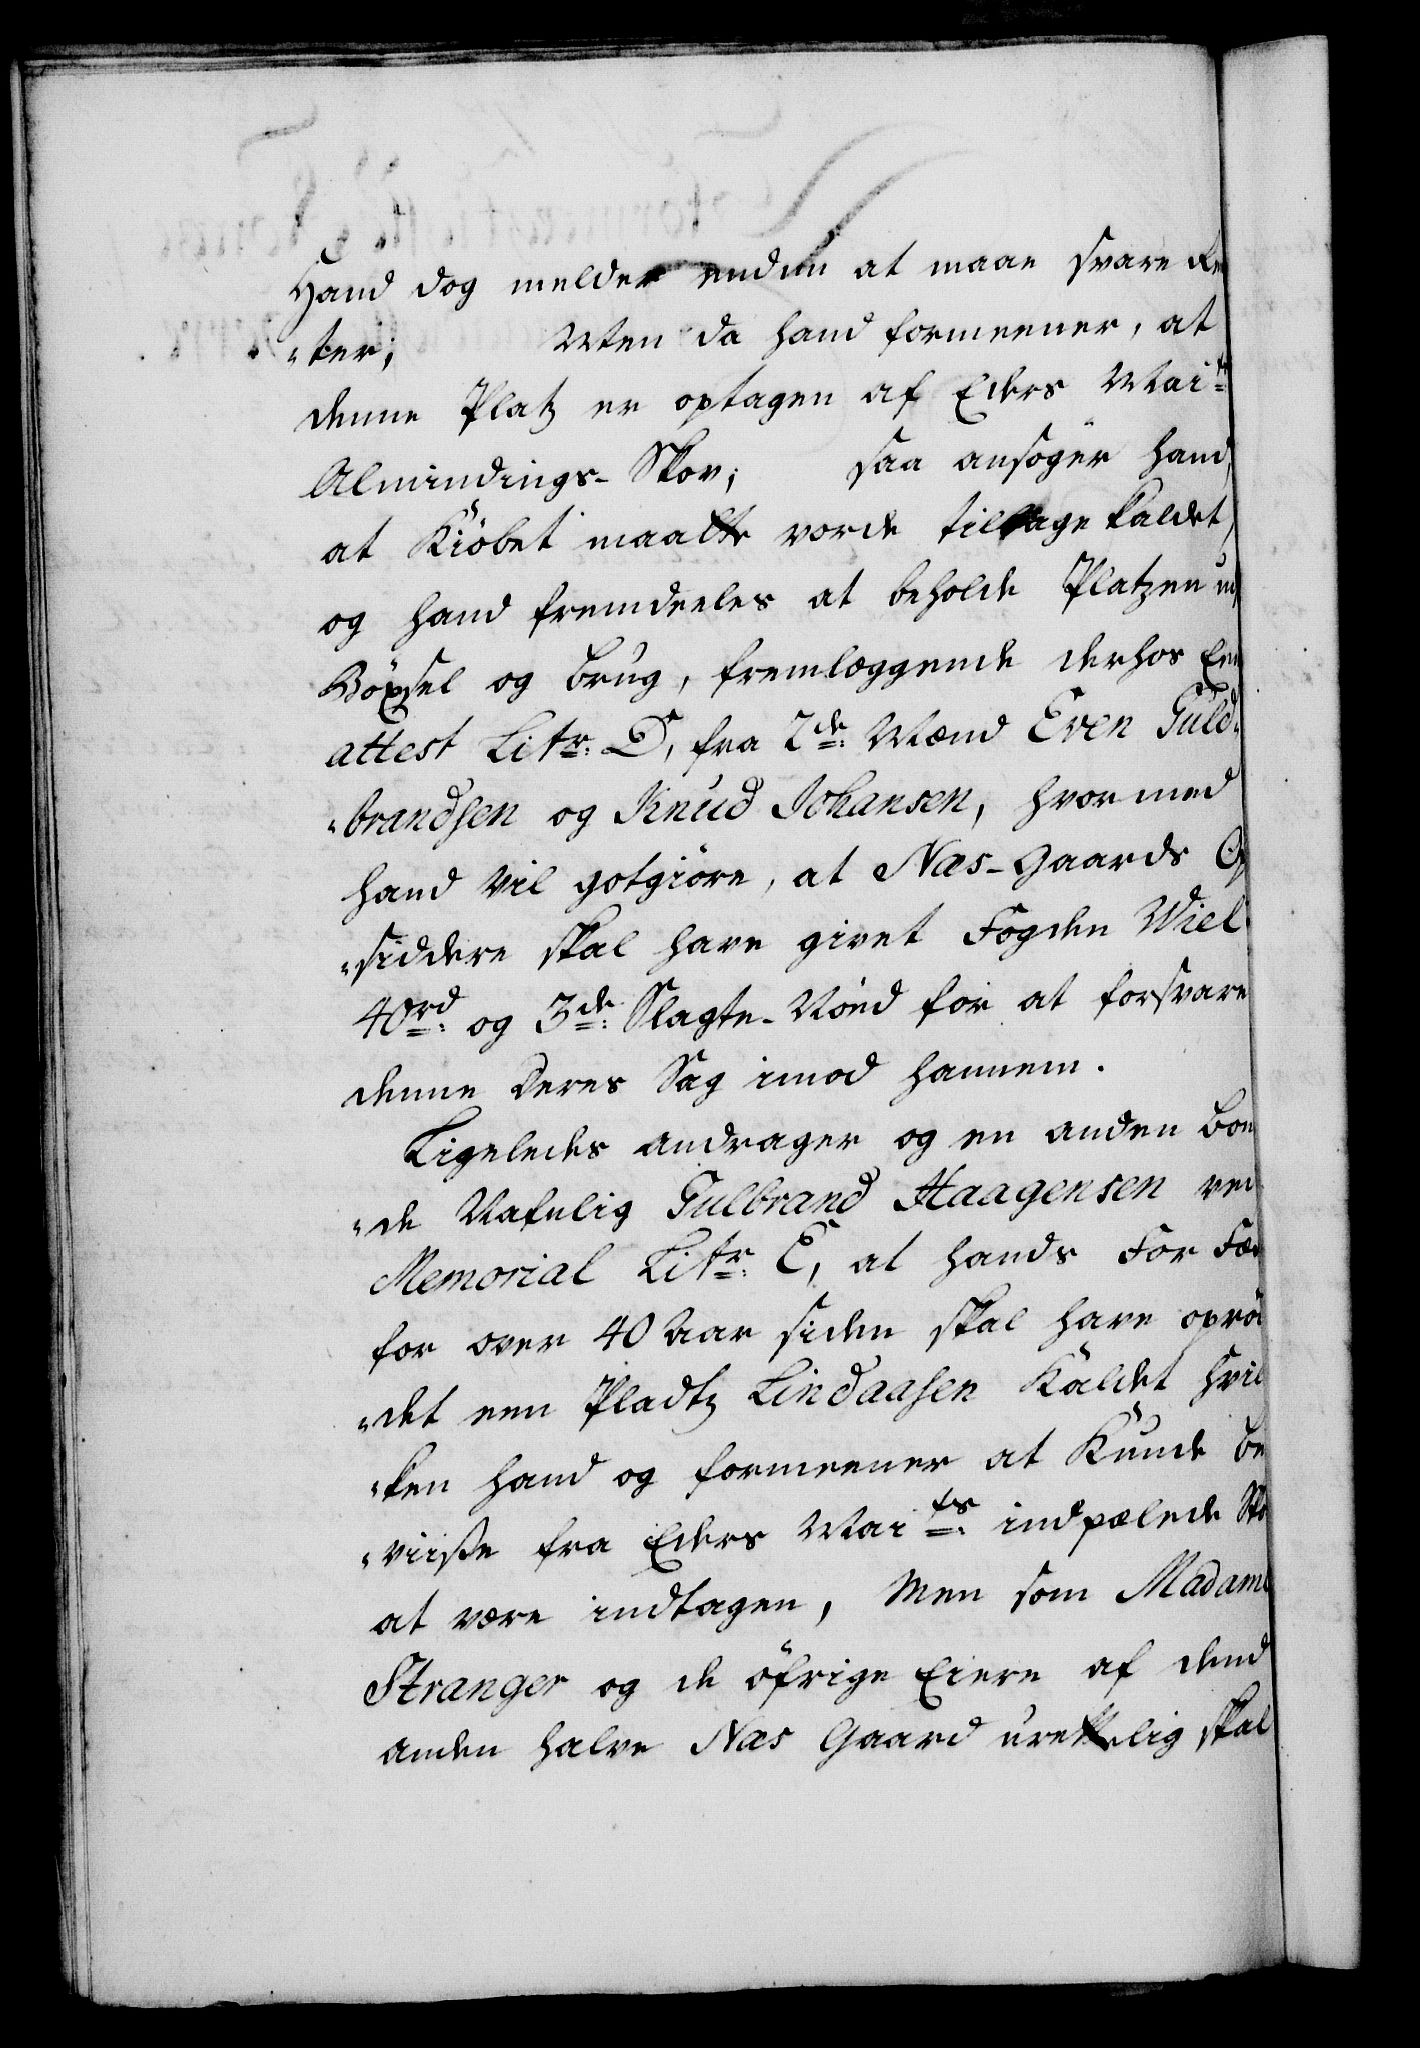 Hand dog melder endnu at maae svare Ret
"ter; Men da hand formeener, at
denne Platz er optagen af Eders Mai:ts
Almindings-Skov; saa ansøger hand,
at Kiöbet maatte vorde tilbage kaldet,
og hand fremdeeles at beholde Platzen ud
Böxsel og brug, fremlæggende derhos Een
attest Litr: D, fra 2de: Mænd Even Guld¬
"brandsen og Knud Johansen, hvormed
hand vil gotgiöre, at Næs-Gaards Op
"siddere skal have givet Fogden Wiel
40rd: og 3de: Slagte-Nöed for at forsvare
denne deres Sag imod hannem.
Ligeledes andrager og en anden bon
"de Nafnlig Gulbrand Haagensen ved
Memorial Litr: E, at hands For Fæd
for over 40 Aar siden skal have oprÿd
"det een Pladtz Lindaasen Kaldet hvil
"ken hand og formeener at Kunde be
"viise fra Eders Mai:ts indpælede Sko
at være indtagen, Men som Madame
Stranger og de öfrige Eiere af dend
anden halve Næs Gaard urettelig skal